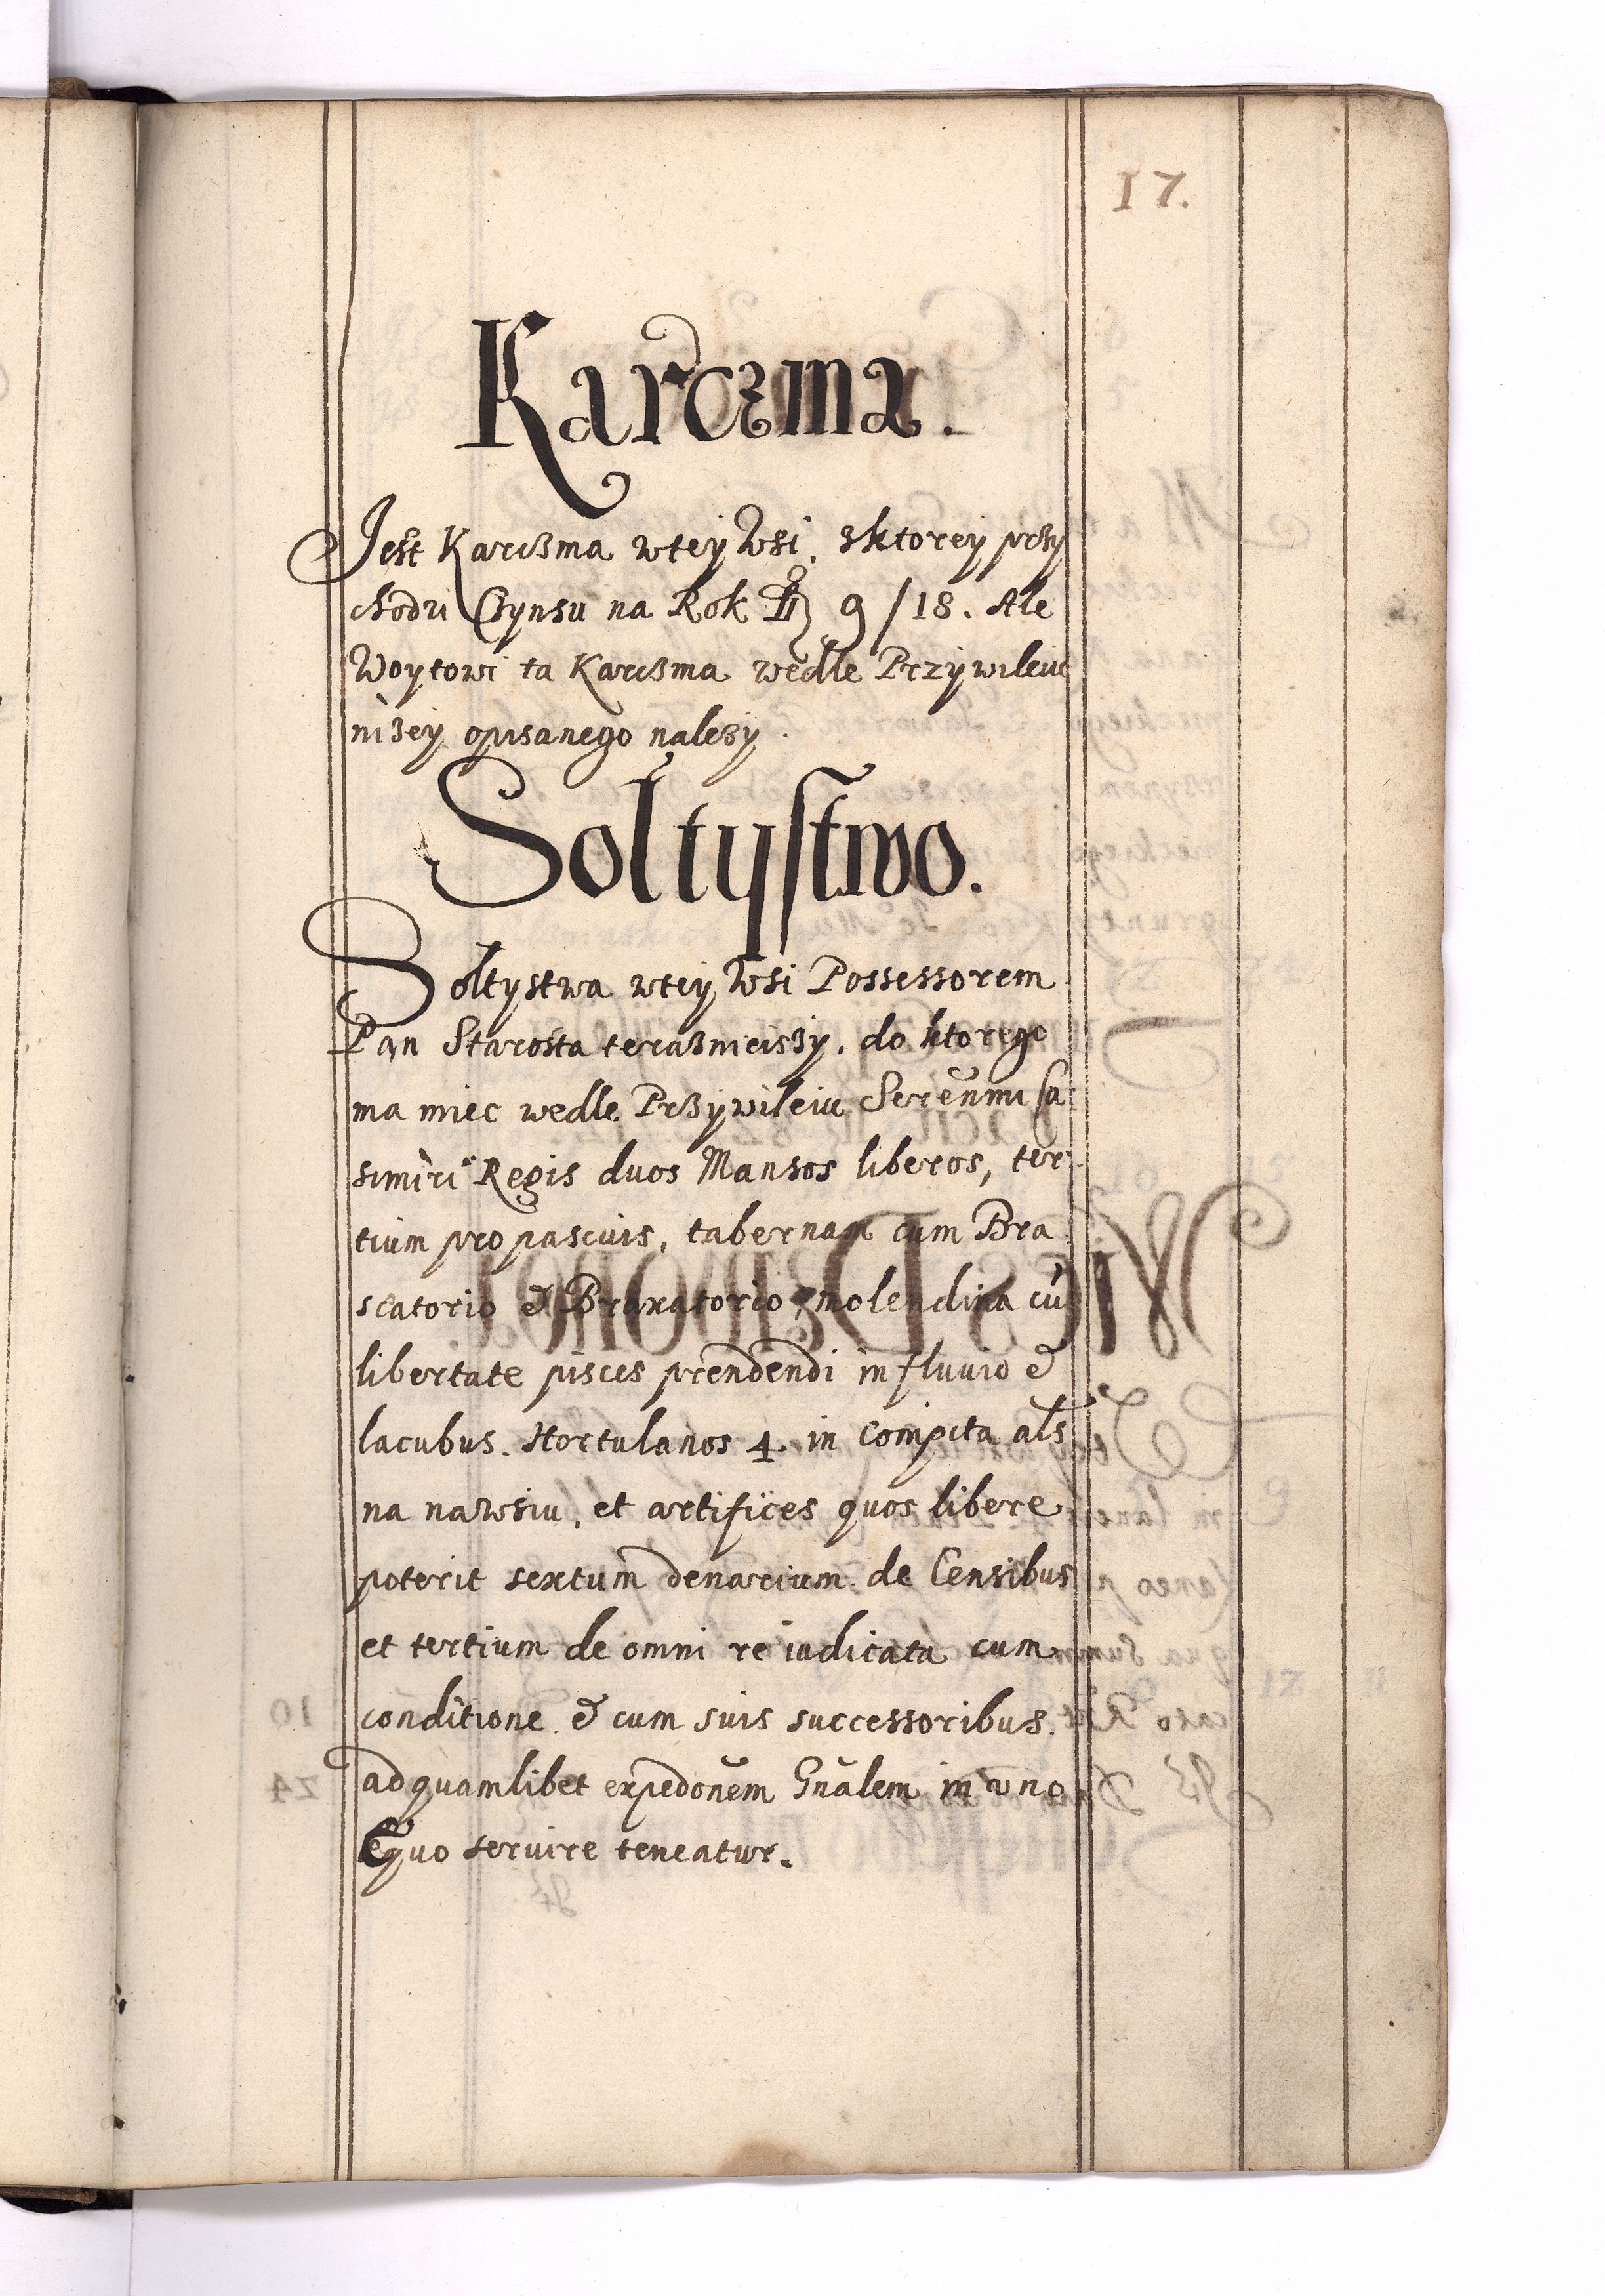 17.
Karczma.
Jest Karczma wtey Wsi. zktorey przy
chodzi Czynsu na Rok 9/18. Ale
Woytowi ta Karczma wedle Przywileiu
niżey opisanego należy.
Sołtystwo.
Sołtystwa wtey Wsi Possessorem
Pan Starosta teraznieiszy. do ktorego
ma miec wedle Przywileiu Serenmi Ca
simiri Regis duos Mansos liberos, ter
tium pro pascuis, tabernam cum Bra
scatorio & Braxatorio, molendina cū
libertate pisces prendendi in fluvio &
lacubus. Hortulanos 4. in Compita als
na nawsiu, et artifices quos libere
poterit sextum denarium de Censibus
et tertium de omni re iudicata cum
conditione & cum suis successoribus.
ad quamlibet expedonem Gnalem in vno
Equo servire teneatur.